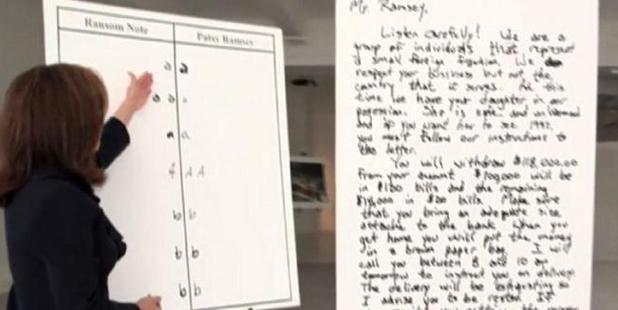 Ransom Note Patsy Ramsey
a a
a a
b b
b b
b b
Mr. Ramsey,
Listen carefully! We are a
group of individuals that represent
a small foreign faction. We
respect your bussiness but not the
country that it serves. At this
time we have your daughter in our
posession. She is safe and unharmed
and if you want her to see 1997,
you must follow our instructions to
the letter.
You will withdraw $118,000.00
from your account. $100,000 will be
in $100 bills and the remaining
$18,000 in $20 bills. Make sure
that you bring an adequate size
attache to the bank. When you
get home you will put the money
in a brown paper bag. I will
call you between 8 and 10 am
tomorrow to instruct you on delivery.
The delivery will be exhausting so
I advise you to be rested. If